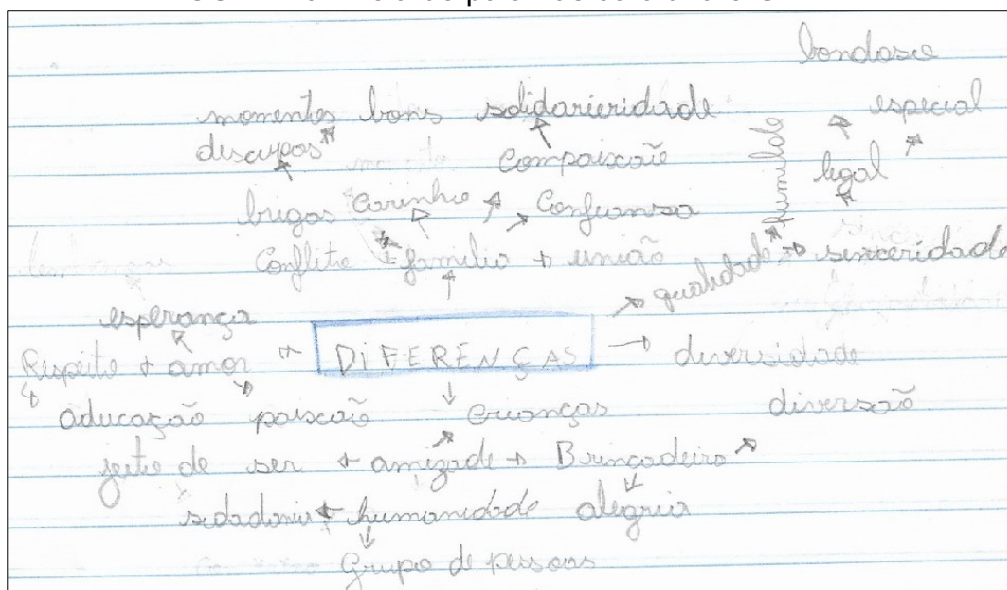 bondasce
momentos bons solidarieridade especial
discupas compaixaõe humilde legal
brigas Carinho Confiansa
Conflito família união qualidade sinceridade
esperança
Respeito amor DIFERENÇAS diversidade
aducação paixaõe crianças diversaõ
jeito de ser amizade Brincadeira
sidadania humanidade alegria
Grupo de pessoas